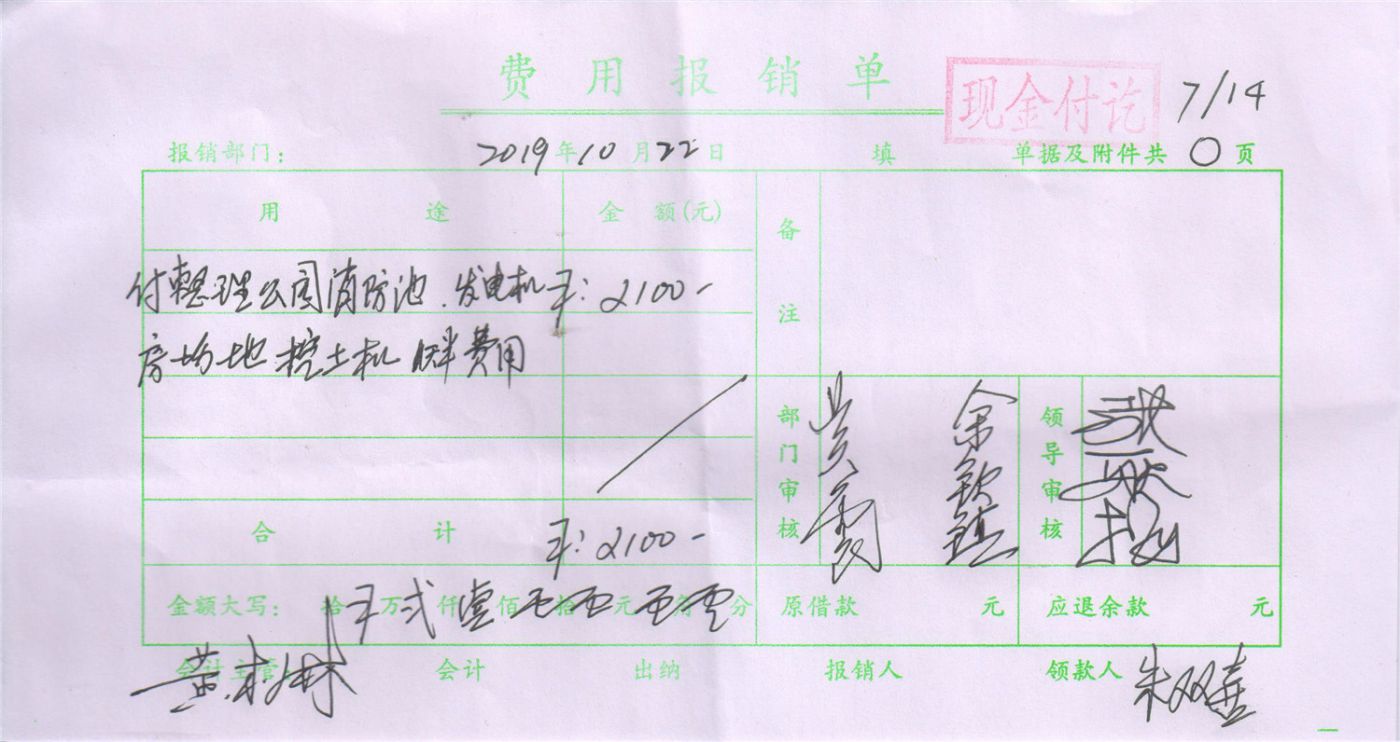 费用报销单
现金付讫
7/14
报销部门: 2019年10月22日 填 单据及附件共 0 页
用途 金额(元) 备注
付整理公园消防池、发电机 ¥: 2100-
房场地挖土机 费用
部门审核 余钦镇 领导审核
合计 ¥: 2100-
金额大写: 拾 万 弍 仟 壹 佰 零 拾 零 元 零 角 零 分 原借款 元 应退余款 元
会计主管 会计 出纳 报销人 领款人 朱双喜